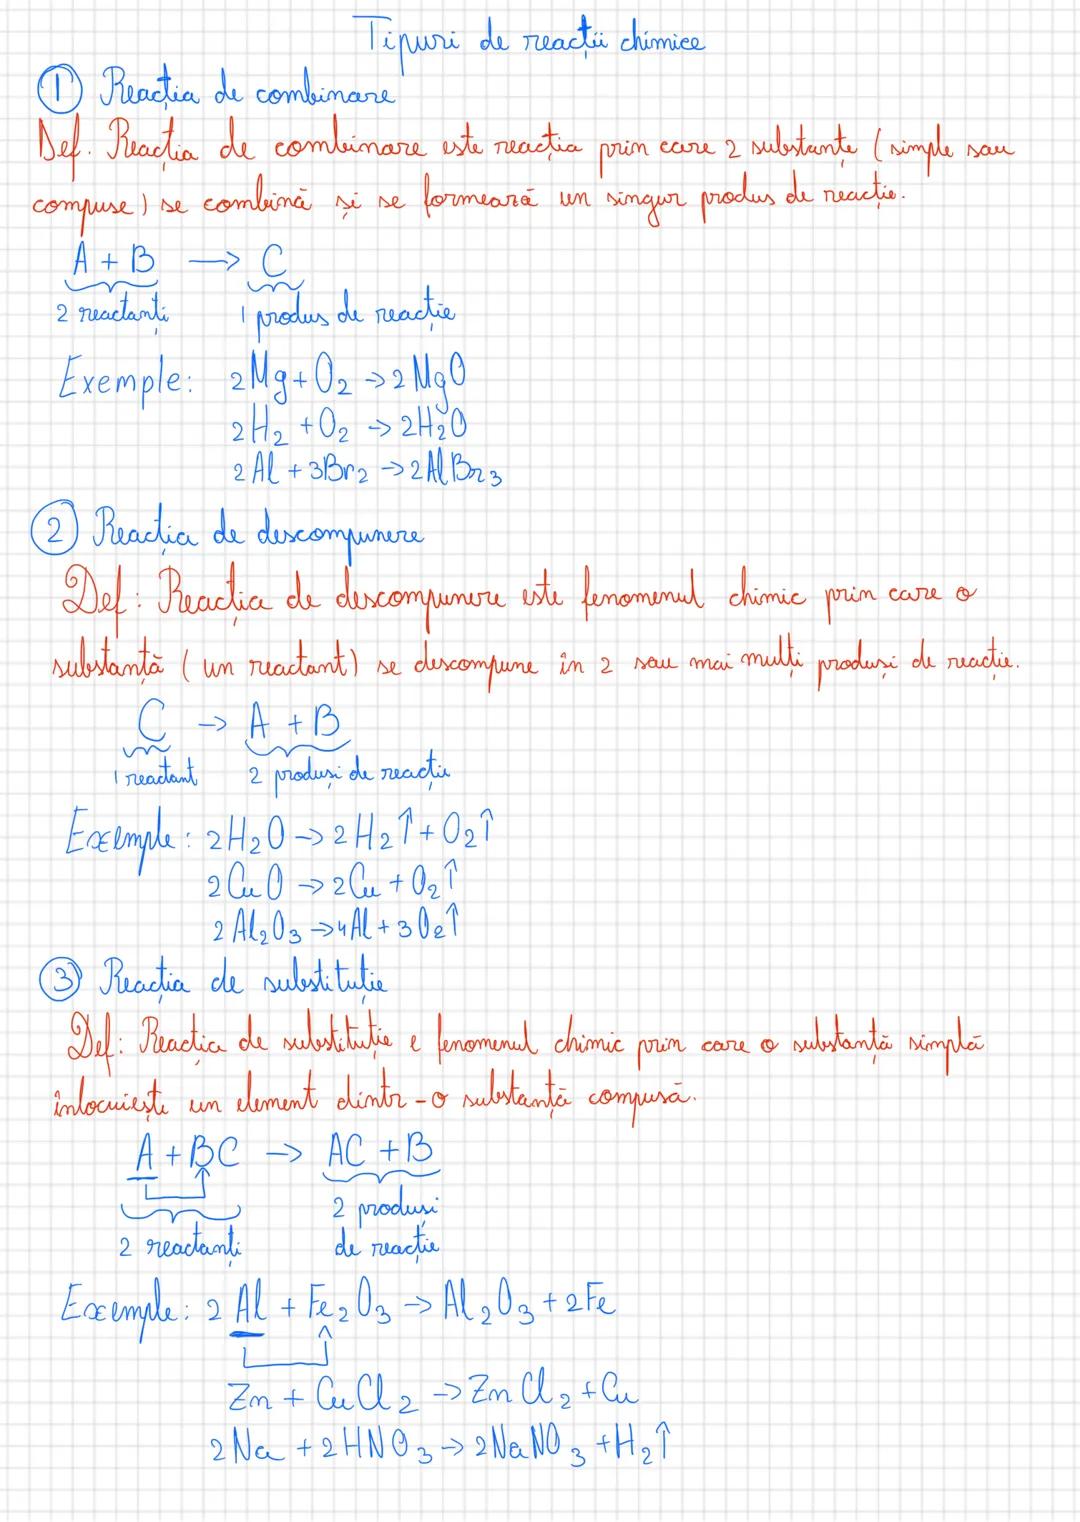 Tipuri de reacții chimice
① Reacția de combinare
Def. Reacția de combinare este reacția prin care 2 substanțe (simple sau
compuse) se combină și se formează un singur produs de reacție.
A + B → C
2 reactanți 1 produs de reacție
Exemple: 2Mg + O₂ → 2MgO
2H₂ + O₂ → 2H₂O
2Al + 3Br₂ → 2AlBr₃
② Reacția de descompunere
Def: Reacția de descompunere este fenomenul chimic prin care o
substanță (un reactant) se descompune în 2 sau mai mulți produși de reacție.
C → A + B
1 reactant 2 produși de reacție
Exemple: 2H₂O → 2H₂↑ + O₂↑
2CuO → 2Cu + O₂↑
2Al₂O₃ → 4Al + 3O₂↑
③ Reacția de substituție
Def: Reacția de substituție e fenomenul chimic prin care o substanță simplă
înlocuiește un element dintr-o substanță compusă.
A + BC → AC + B
2 reactanți 2 produși
de reacție
Exemple: 2Al + Fe₂O₃ → Al₂O₃ + 2Fe
Zn + CuCl₂ → ZnCl₂ + Cu
2Na + 2HNO₃ → 2NaNO₃ + H₂↑